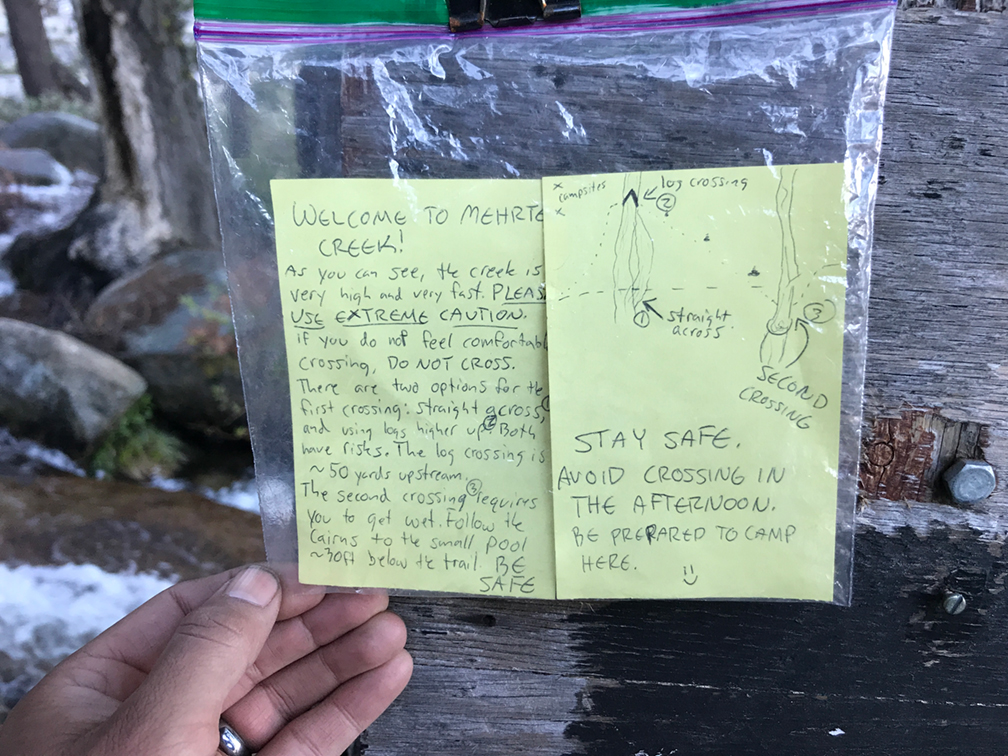 WELCOME TO MEHRTE
CREEK!
As you can see, the creek is
very high and very fast. PLEAS
USE EXTREME CAUTION.
if you do not feel comfortabl
crossing, DO NOT CROSS.
There are two options for the
first crossing: straight across,
and using logs higher up②. Both
have risks. The log crossing is
~50 yards upstream.
The second crossing③ requires
you to get wet. Follow the
Cairns to the small pool
~30ft below the trail. BE
SAFE
campsites
log crossing
②
① straight
across
③
SECOND
CROSSING
STAY SAFE.
AVOID CROSSING IN
THE AFTERNOON.
BE PREPARED TO CAMP
HERE.